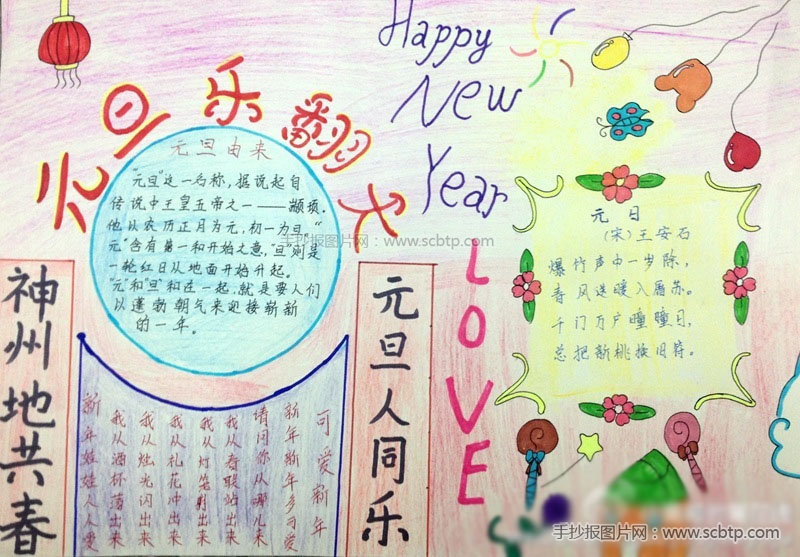 元旦乐翻天
Happy
New
Year
元旦由来
"元旦"这一名称，据说起自
传说中王皇五帝之一——颛顼。
他以农历正月为元，初一为旦。"
元"含有第一和开始之意，"旦"则是
一轮红日从地面开始升起。
"元"和"旦"和在一起，就是要人们
以蓬勃朝气来迎接崭新
的一年。
神州地共春
元旦人同乐
可爱新年
新年新年多可爱
请问你从哪儿来
我从春联站出来
我从灯笼射出来
我从礼花冲出来
我从烛光闪出来
我从酒杯荡出来
新年娃娃人人爱
LOVE
元日
（宋）王安石
爆竹声中一岁除，
春风送暖入屠苏。
千门万户曈曈日，
总把新桃换旧符。
手抄报图片网：www.scbtp.com
手抄报图片网：www.scbtp.com